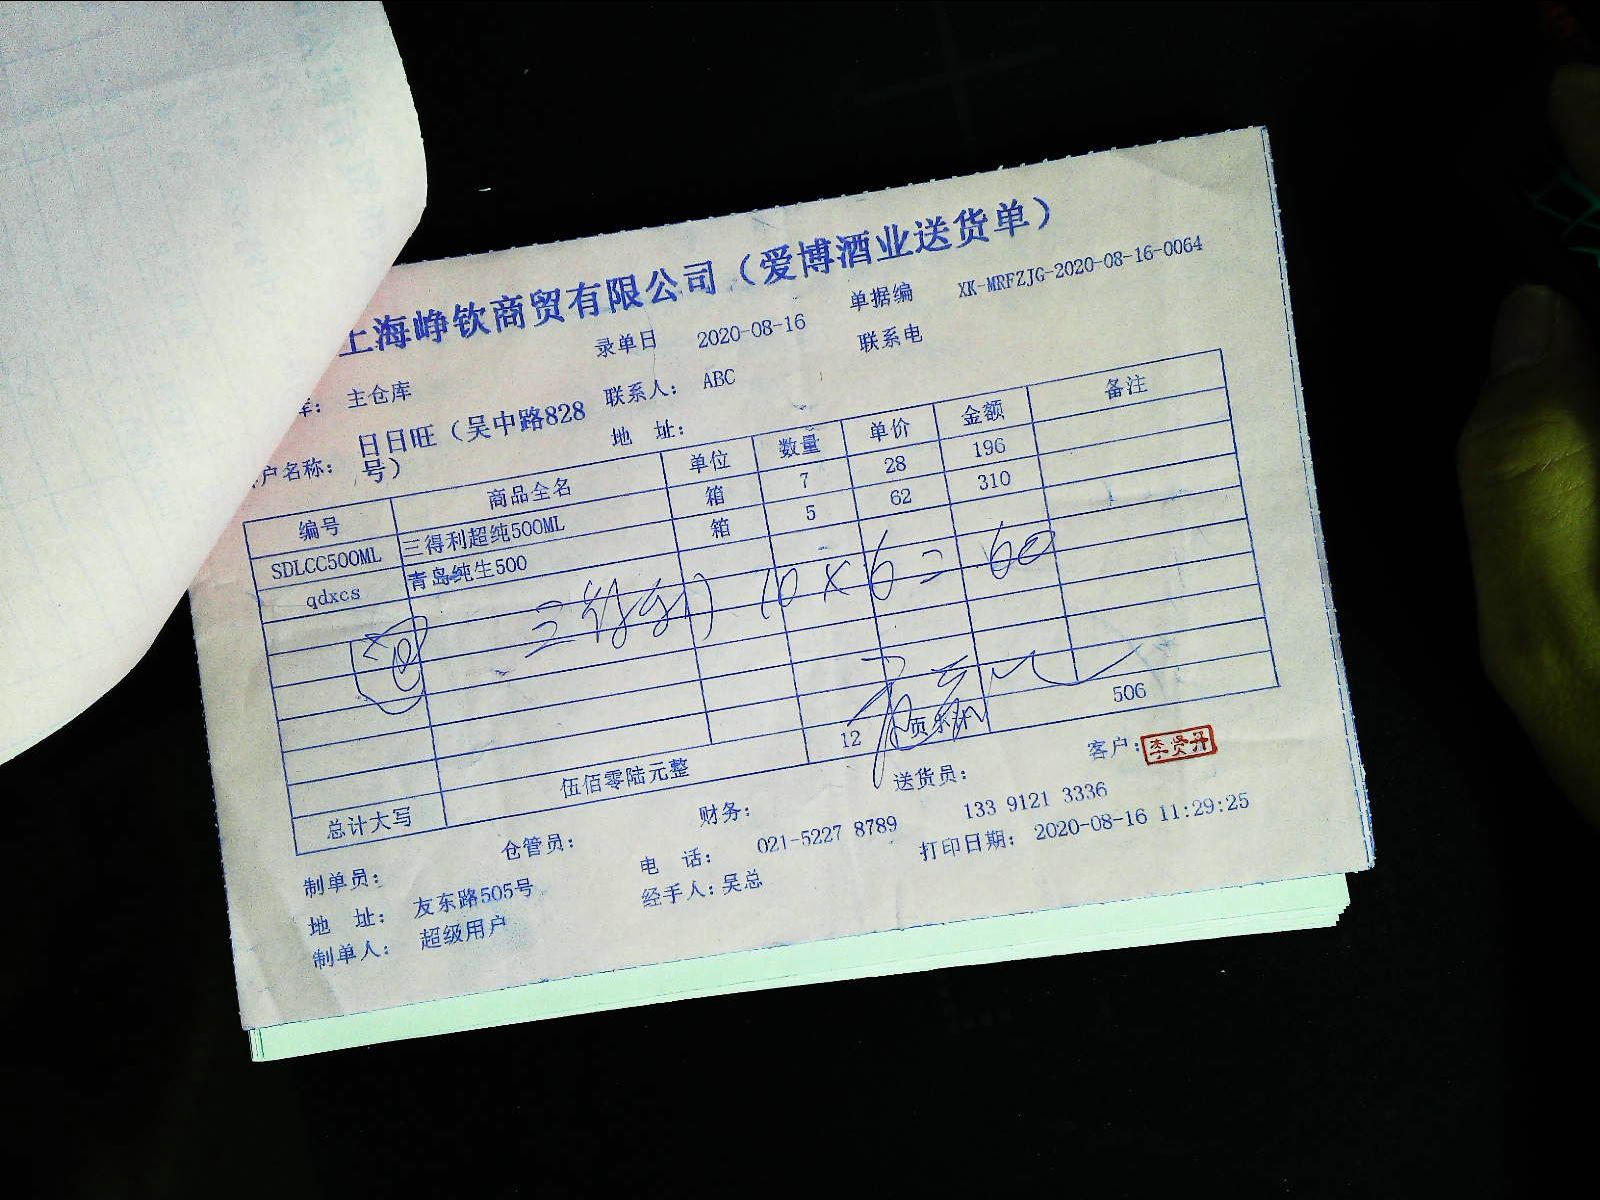 上海峥钦商贸有限公司（爱博酒业送货单）
录单日 2020-08-16 单据编 XK-MRFZJG-2020-08-16-0064
库： 主仓库 联系人： ABC 联系电
户名称： 日日旺（吴中路828号） 地 址：
编号 商品全名 单位 数量 单价 金额 备注
SDLCC500ML 三得利超纯500ML 箱 7 28 196
qdxcs 青岛纯生500 箱 5 62 310
三得利 10×6=60
总计大写 伍佰零陆元整 12 506
制单员： 仓管员： 财务： 送货员： 客户： 李贤丹
地 址： 友东路505号 电 话： 021-5227 8789 133 9121 3336
制单人： 超级用户 经手人： 吴总 打印日期： 2020-08-16 11:29:25